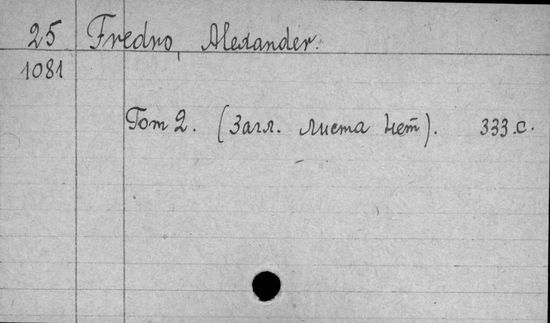 25 Fredro, Alexander.
1081
Том 2. (Загл. листа нет). 333 с.